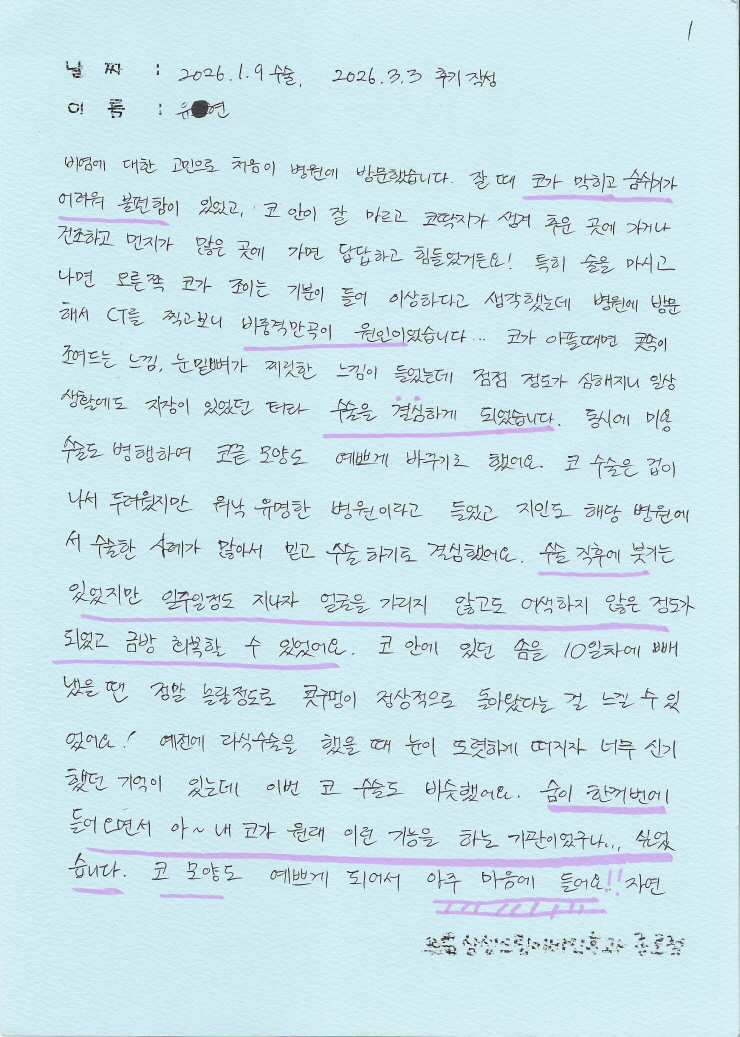 1
날 짜 : 2026.1.9 수술, 2026.3.3 후기 작성
이 름 : 유 연
비염에 대한 고민으로 처음이 병원에 방문했습니다. 잘 때 코가 막히고 숨쉬기가
어려워 불편함이 있었고, 코 안이 잘 마르고 코딱지가 생겨 추운 곳에 가거나
건조하고 먼지가 많은 곳에 가면 답답하고 힘들었거든요! 특히 술을 마시고
나면 오른쪽 코가 조이는 기분이 들어 이상하다고 생각했는데 병원에 방문
해서 CT를 찍고보니 비중격만곡이 원인이었습니다... 코가 아플때면 콧쪽이
조여드는 느낌, 눈밑뼈가 찌릿한 느낌이 들었는데 점점 정도가 심해지니 일상
생활에도 지장이 있었던 터라 수술을 결심하게 되었습니다. 동시에 미용
수술도 병행하여 코끝 모양도 예쁘게 바꾸기로 했어요. 코 수술은 겁이
나서 두려웠지만 워낙 유명한 병원이라고 들었고 지인도 해당 병원에
서 수술한 사례가 많아서 믿고 수술 하기로 결심했어요. 수술 직후에 붓기는
있었지만 일주일정도 지나자 얼굴을 가리지 않고도 어색하지 않은 정도가
되었고 금방 회복할 수 있었어요. 코 안에 있던 솜을 10일차에 빼
냈을 땐 정말 놀랄정도로 콧구멍이 정상적으로 돌아왔다는 걸 느낄 수 있
었어요! 예전에 라식수술을 했을 때 눈이 또렷하게 떠지자 너무 신기
했던 기억이 있는데 이번 코 수술도 비슷했어요. 숨이 한꺼번에
들어오면서 아~ 내 코가 원래 이런 기능을 하는 기관이었구나... 싶었
습니다. 코 모양도 예쁘게 되어서 아주 마음에 들어요!! 자연
종로점